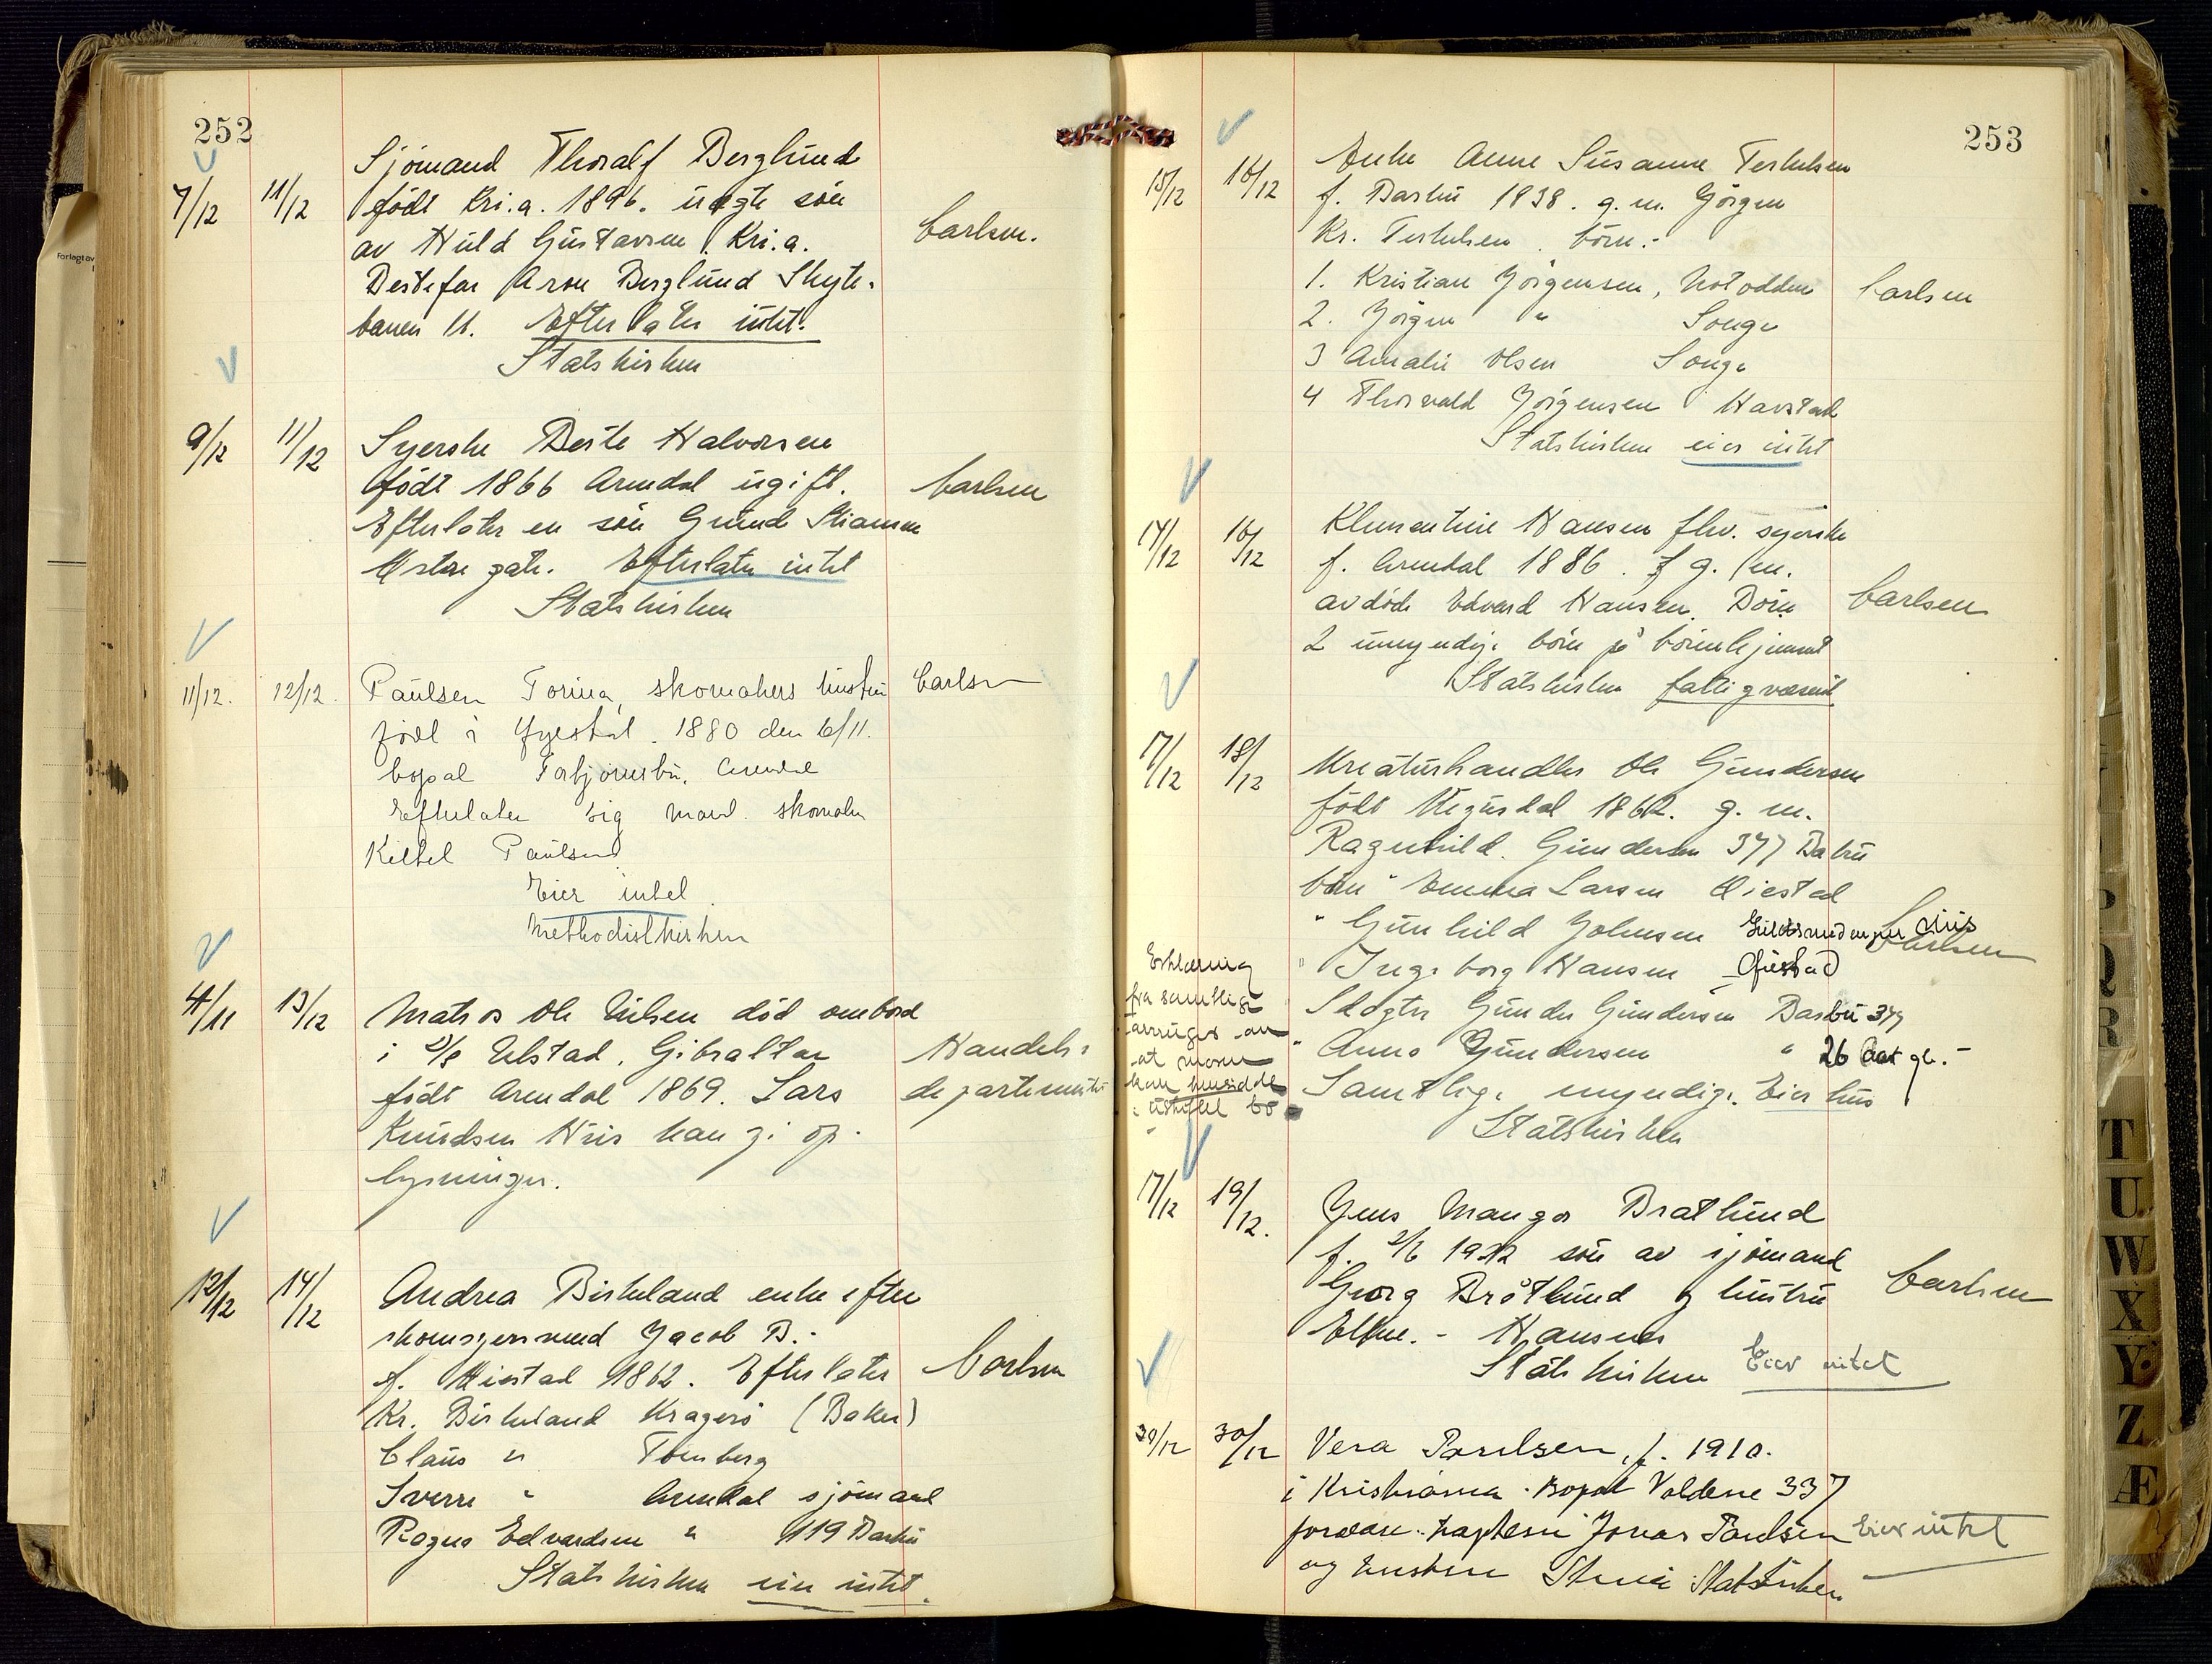 252
7/12 11/12 Sjömand Thoralf Berglund
født Kri.a. 1896. uegte sön
av Huld Gustavsen, Kri.a. Carlsen.
Bestefar Aron Berglund Skyte-
banen 11. Efterlater intet.
Statskirken
9/12 11/12 Syerske Berte Halvorsen
født 1866 Arendal ugift. Carlsen
Efterlater en sön Gunde
Østre gate. Efterlater intet
Statskirken
11/12. 12/12. Paulsen Torina, skomakers hustru Carlsen
född i Øyestad. 1880 den 6/11.
bopæl Torbjörnsbu, Arendal
Efterlater sig mand. skomaker
Kittel Paulsen
Eier intet.
Methodistkirken
4/11 13/12 Matros Ole Nilsen död ombord
i S/S Ulstad, Gibraltar Handels-
født Arendal 1869. Lars departementet
Knudsen His kan gi op-
lysninger.
12/12 14/12 Andrea Birkeland enke efter
Jacob B.-
f. Øiestad 1862. Efterlater Carlsen
Kr. Birkeland Kragerö (Baker)
Claus " Tönsberg
Sverre " Arendal sjömand
Ragna Edvardsen " 119 Barbu
Statskirken eier intet.
253
15/12 16/12 Enke Anne Susanne Terkelsen
f. Barbu 1838. g.m. Görgen
Kr. Terkelsen. börn:-
1. Kristian Jörgensen, Notodden Carlsen
2. Jörgen " Songe
3 Amalie Olsen Songe
4 Thorvald Jörgensen Havstad
Statskirken eier intet
14/12 16/12 Klementine Hansen fhv. syerske
f. Arendal 1886. g. m.
avdöde Edvard Hansen. Börn Carlsen
2 umyndige börn på börnehjemmet
Statskirken fattigvæsenet
17/12 18/12 Kreaturhandler Ole Gundersen
født Vegusdal 1862. g. m.
Ragnhild Gundersen 377 Barbu
börn Emma Larsen Øiestad
" Gunhild Johnsen His Carlsen
" Ingeborg Hansen Øiestad
Slagter Gunder Gundersen Barbu 377
" Anna Gundersen " 26 aar gl.-
Samtlige myndige. Eier hus
Statskirken
Erklæring
fra samtlige
arvinger om
at moren
kan hensidde
i uskiftet bo
17/12 19/12. Jens Brøtlund
f. 2/6 1912 sön av sjömand
Georg Brøtlund og hustru Carlsen
Hansnes
Statskirken Eier intet
30/12 30/12 Vera Paulsen, f. 1910.
i Kristiania. Bopæl Voldene 337
forældre: Jonas Paulsen Eier intet
og hustru Statskirken